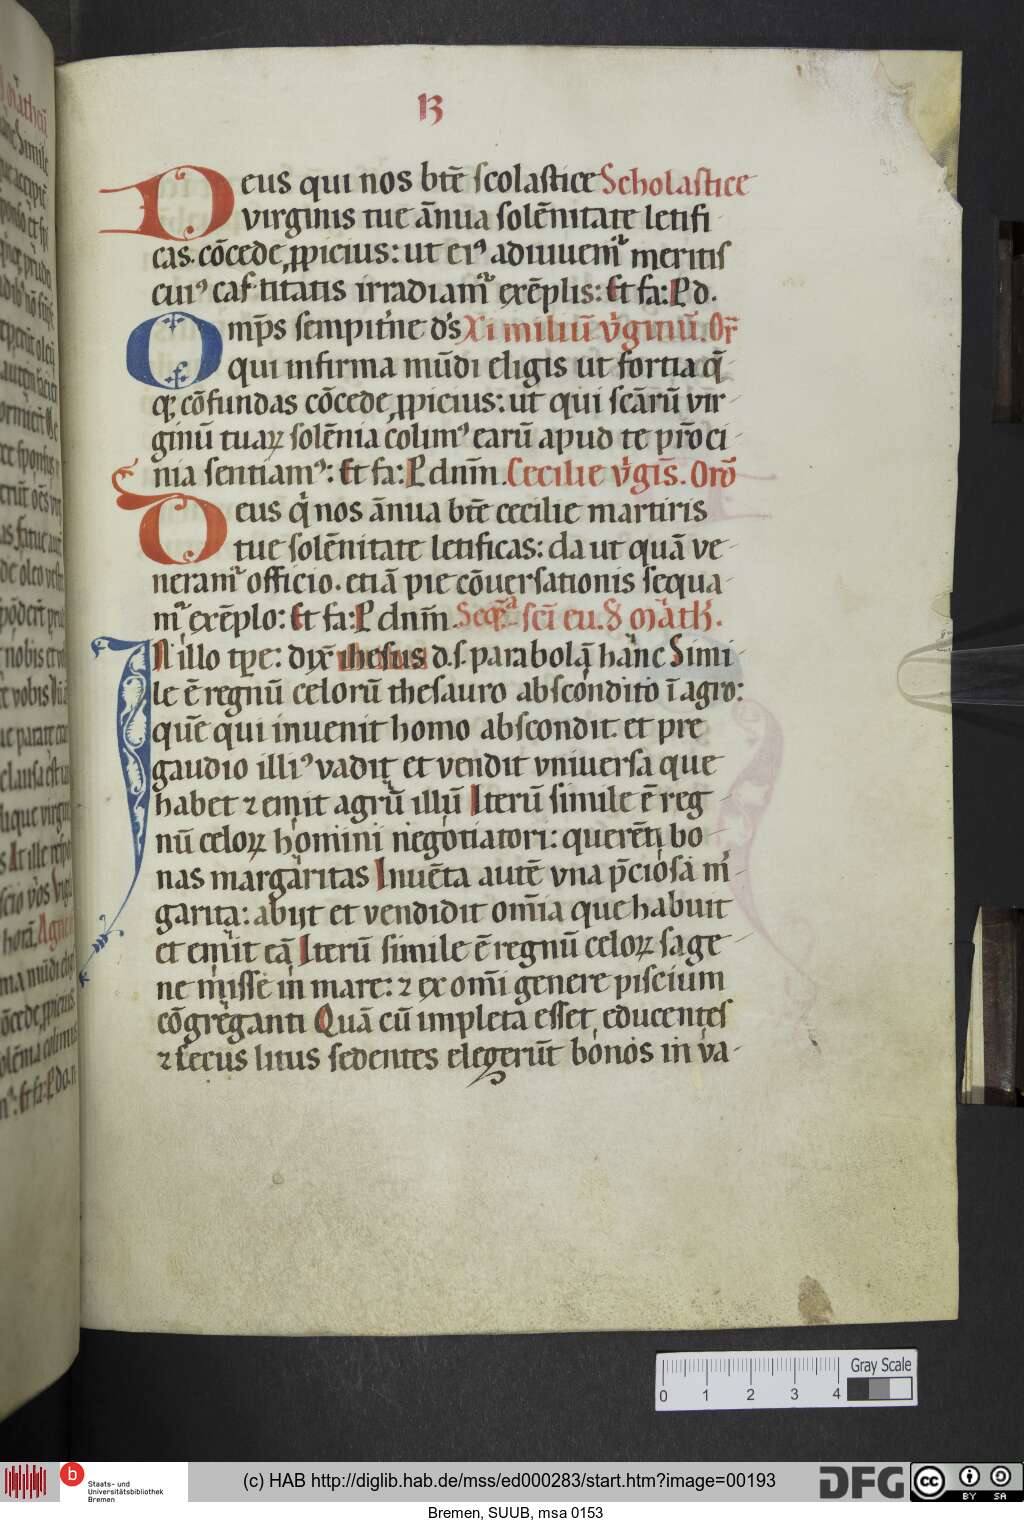 B
Deus qui nos btē scolastice Scholastice
virginis tue ānua solēnitate letifi
cas. cōcede ꝓpicius: ut eiꝰ adiuuemᷣ meritis
cuiꝰ castitatis irradiamᷣ exēplis: Et fa: P d.
Omps sempitne ds Xi miliū vginū. Or
qui infirma mūdi eligis ut fortia q̄
qꝫ cōfundas cōcede ꝓpicius: ut qui scārū vir-
ginū tuaꝝ solēnia colimꝰ earū apud te p̄oci-
nia sentiamꝰ: Et fa: P dnm̄. Cecilie vgīs. Orō
Deus q nos ānua btē cecilie martiris
tue solēnitate letificas: da ut quā ve-
neramᷣ officio. etiā pie cōuersationis sequa-
mᷣ exēplo: Et fa: P dnm̄. Seq scī eu. s Math.
In illo tpe: dix̄ ihesus d. s. parabolā hanc Simi-
le ē regnū celorū thesauro abscondito ī agro:
quē qui inuenit homo abscondit. et pre
gaudio illiꝰ vadit et vendit vniuersa que
habet ⁊ emit agrū illū Iterū simile ē reg-
nū celoꝝ homini negotiatori: querēti bo-
nas margaritas Inuēta autē vna p̄ciosa m-
garita: abijt et vendidit om̄ia que habuit
et emit eā Iterū simile ē regnū celoꝝ sage-
ne misse in mare: ⁊ ex omī genere piscium
cōgreganti Quā cū impleta esset, educentes
⁊ secus litus sedentes elegerūt bonos in va-
96
0 1 2 3 4
Gray Scale
b
Staats- und
Universitätsbibliothek
Bremen
(c) HAB http://diglib.hab.de/mss/ed000283/start.htm?image=00193
DFG
cc BY SA
Bremen, SUUB, msa 0153